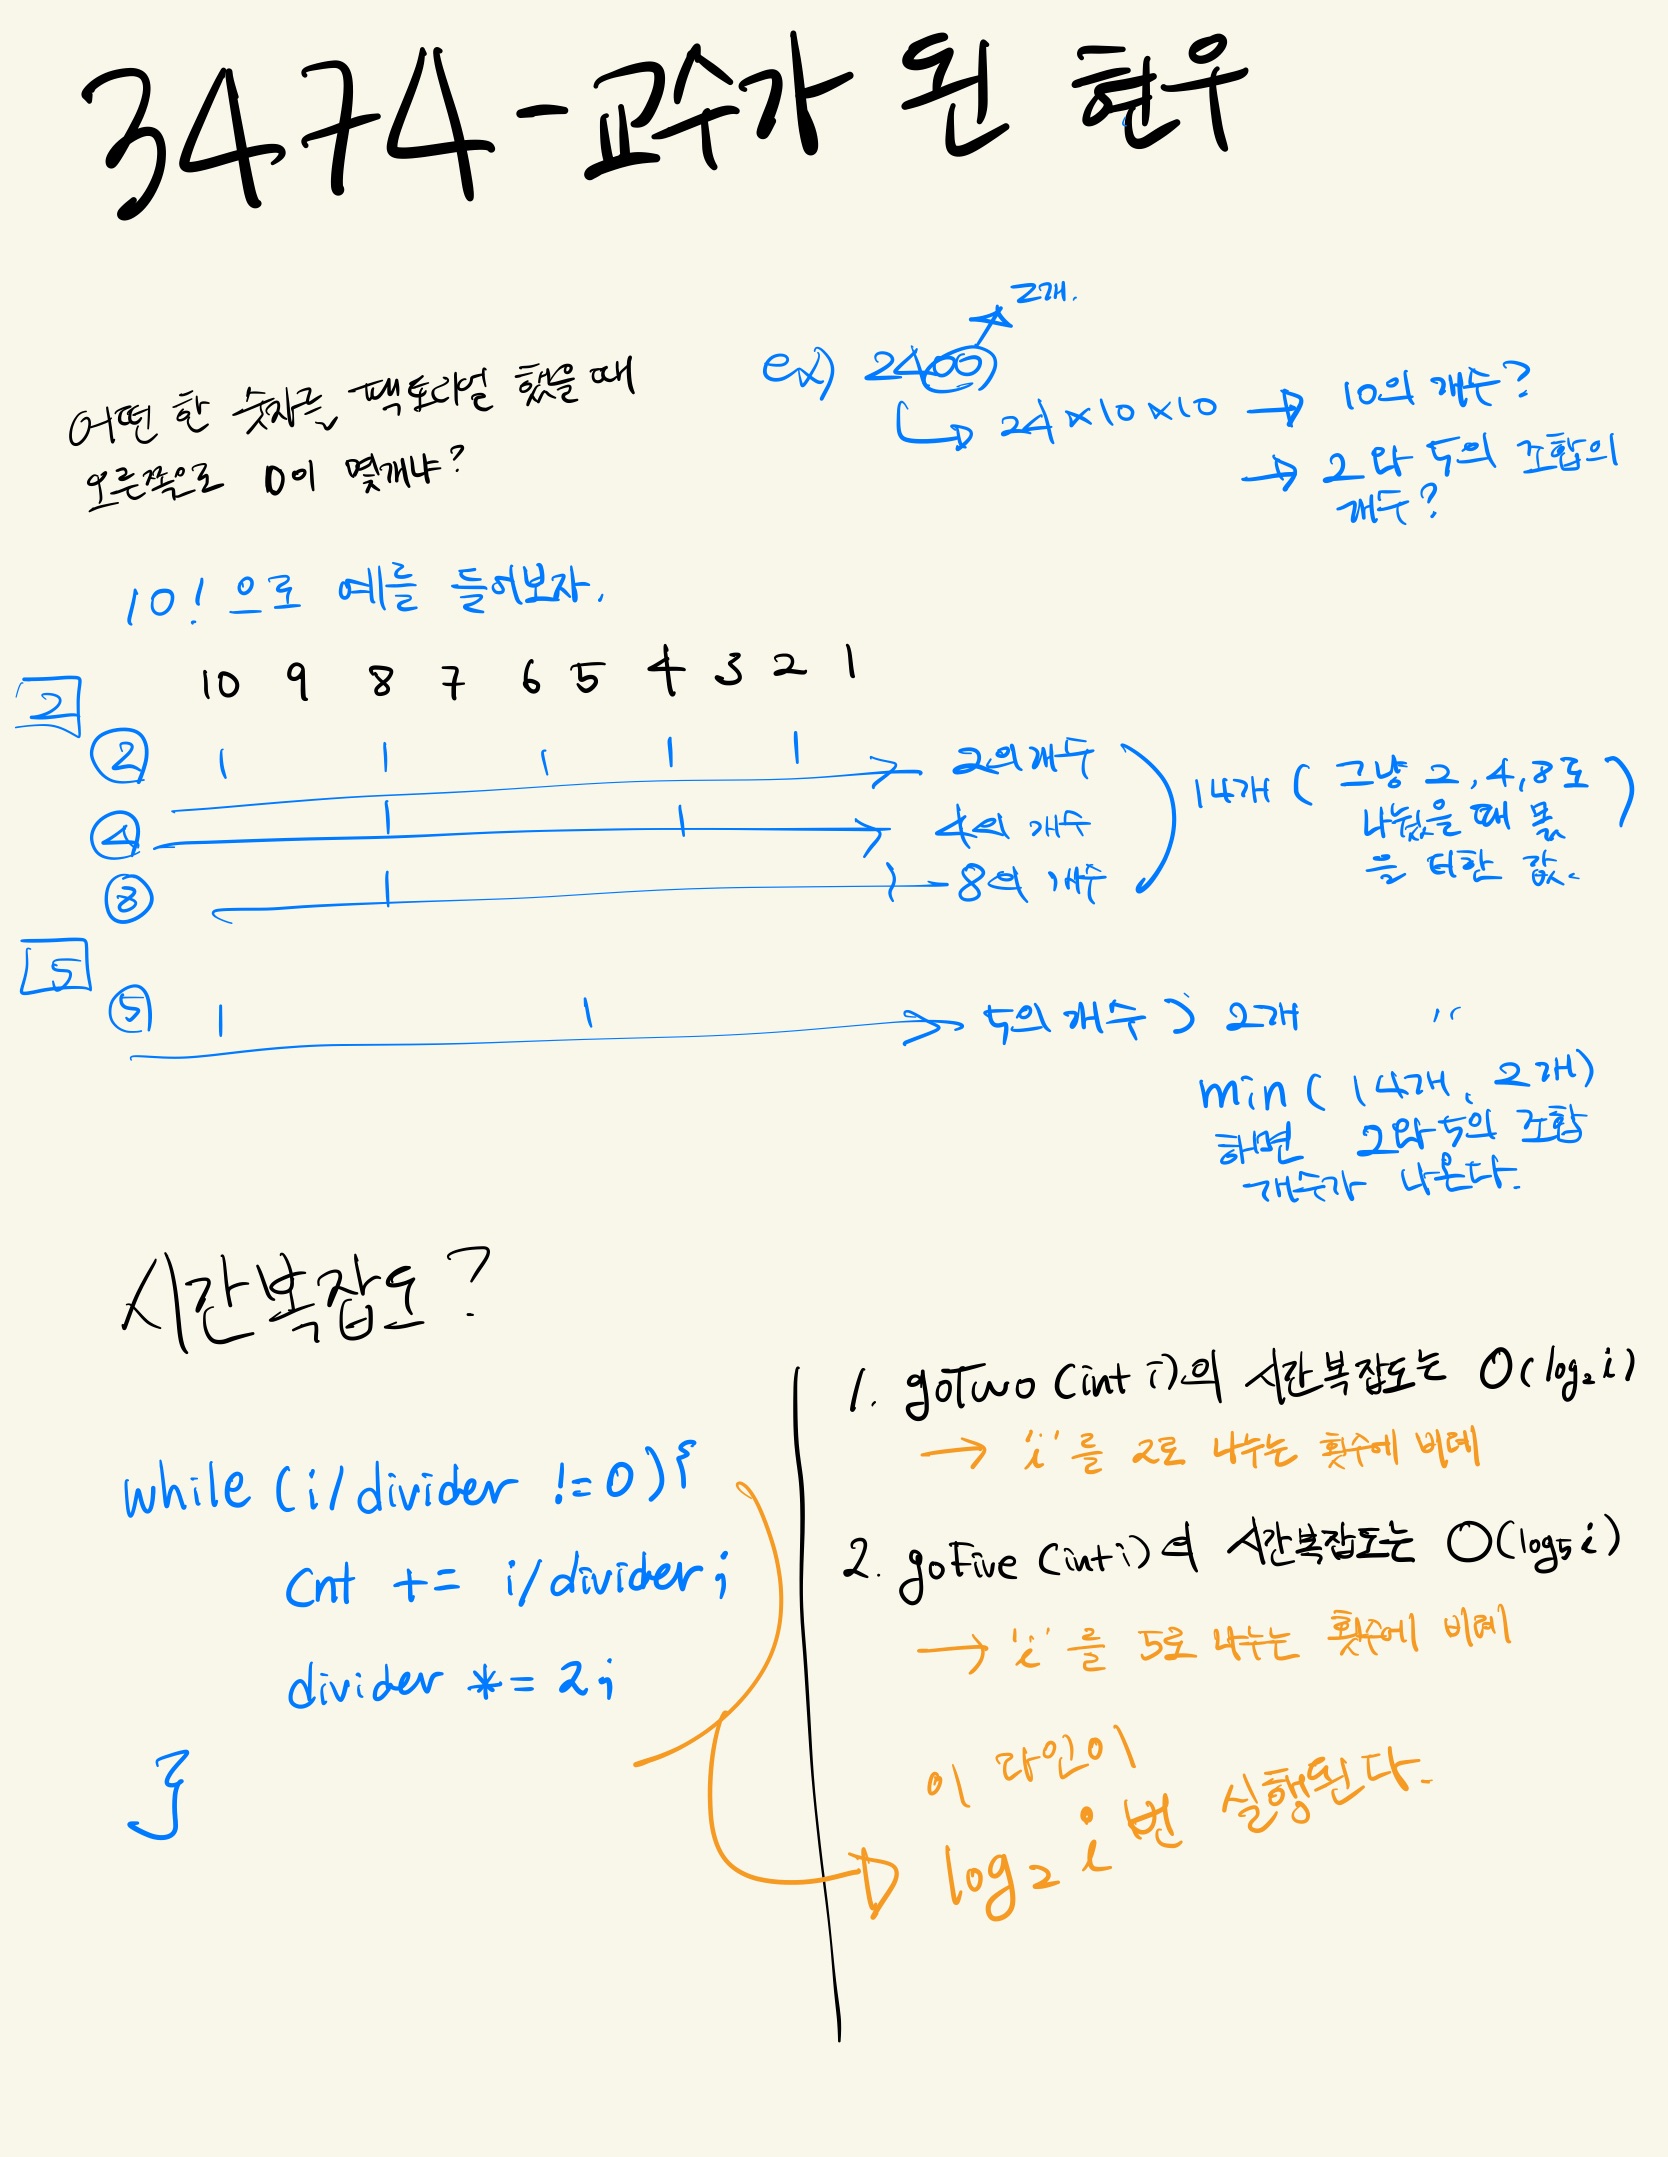 3474 - 교수가 된 현우
어떤 한 숫자를 팩토리얼 했을 때
오른쪽으로 0이 몇개냐?
ex) 2400
2개.
24 × 10 × 10 → 10의 개수?
→ 2와 5의 조합의
개수?
10! 으로 예를 들어보자.
10 9 8 7 6 5 4 3 2 1
2
② 1 1 1 1 1 2의 개수
④ 1 1 4의 개수
⑧ 1 8의 개수
14개 ( 그냥 2, 4, 8로
나눴을 때 몫
을 더한 값. )
5
⑤ 1 1 5의 개수 > 2개
min( 14개, 2개)
하면 2와 5의 조합
개수가 나온다.
시간복잡도?
while (i/divider != 0){
cnt += i/divider;
divider *= 2;
}
1. goTwo (int i)의 시간복잡도는 O(log₂i)
→ 'i'를 2로 나누는 횟수에 비례
2. goFive (int i)의 시간복잡도는 O(log₅i)
→ 'i'를 5로 나누는 횟수에 비례
이 라인이
log₂i번 실행된다.